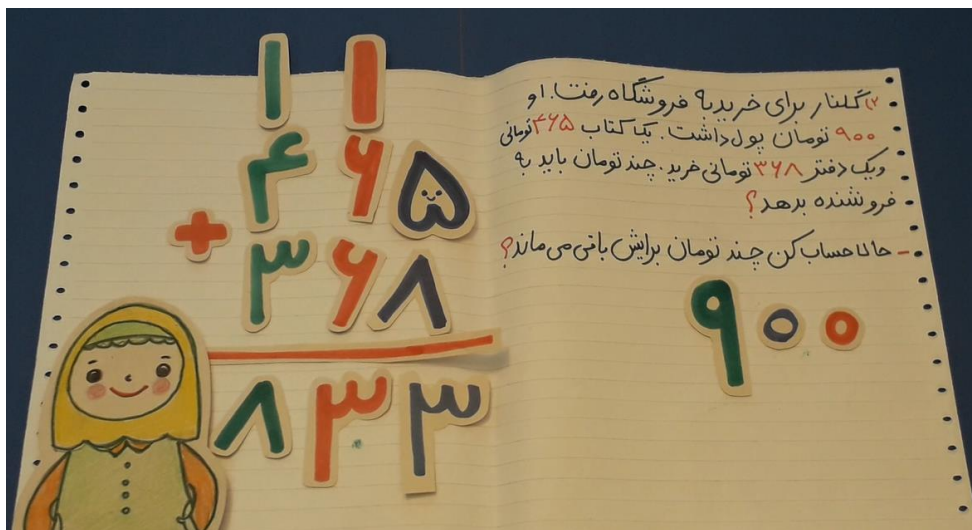 ۲) گلنار برای خرید به فروشگاه رفت. او
۹۰۰ تومان پول داشت. یک کتاب ۴۶۵ تومانی
و یک دفتر ۳۶۸ تومانی خرید. چند تومان باید به
فروشنده بدهد؟
- حالا حساب کن چند تومان برایش باقی می ماند؟
۹۰۰
۱۱
۴۶۵
+
۳۶۸
۸۳۳